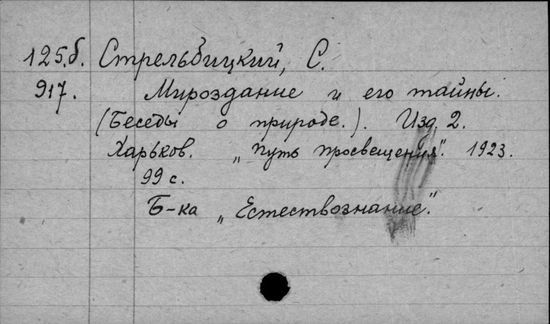 125.б. Стрельбицкий, С.
917. Мироздание и его тайны.
(Беседы о природе.). Изд. 2.
Харьков. „Путь просвещения". 1923.
99 с.
Б-ка „Естествознание".